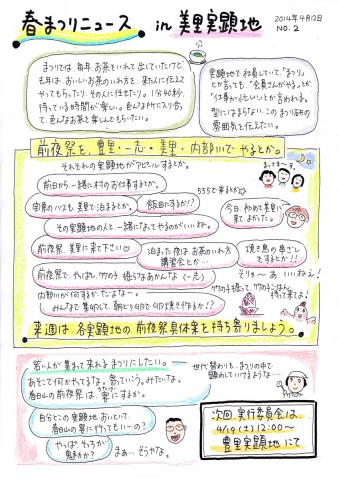 春まつりニュース in 美里実顕地
2014年4月12日
NO.2
まつりでは毎年、お茶をいれて出していたけど、
今年は、おいしいお茶のいれ方を、来た人に伝えて
やってもらったり、その人に任せたり。1分40秒、
待っている時間が楽しい。色んな村に入り合っ
て、色んなお茶を楽しんでもらいたい。
実顕地で社員していて、「まつり」
とか言っても、"全員さんがやる"とか、
"仕事が忙しい"とか言われる。
型にはまらない、このまつり独特の
雰囲気を伝えたい。
前夜祭を、豊里・一志・美里・内部川でやるとか。
それぞれの実顕地がアピールするとか。
前日から一緒に村のお仕事するとか。
実家のバスも、美里で泊まるとか。
飯田たるか!?
555で来るか
まってま〜す。
その実顕地の人と一緒になってやるのがいいね。
今日、初めて美里へ
来てよかった。
前夜祭、美里に来て下さい♡
泊まった夜は、お茶のいれ方
講習会とか…
焼き鳥の串ざし
をするとか!!
前夜祭で、やっぱし竹の子掘らなあかんなぁ(一志)
そりゃ〜あ いいねぇ!
内部川が何するか、だよな〜。
みんなで集卵して、朝どり卵で卵焼き作るか!?
竹の子掘って、竹の子ごはん
持って来てよ!
来週は、各実顕地の前夜祭具体案を持ち寄りましょう。
若い人が集まって来れるまつりにしたい。
あそこで何かやってるなぁ、寄っていこう。みたいな。
春日山の前夜祭は、寮にするか。
世代替わりも、まつりの中で
顕わしていけるような……
自分とこの実顕地おいといて、
春日山の寮に行ってもいーの?
やっぱ、そっちが
魅力か?
まぁ…そうやなぁ。
次回実行委員会は、
4/19(土)12:00〜
豊里実顕地にて